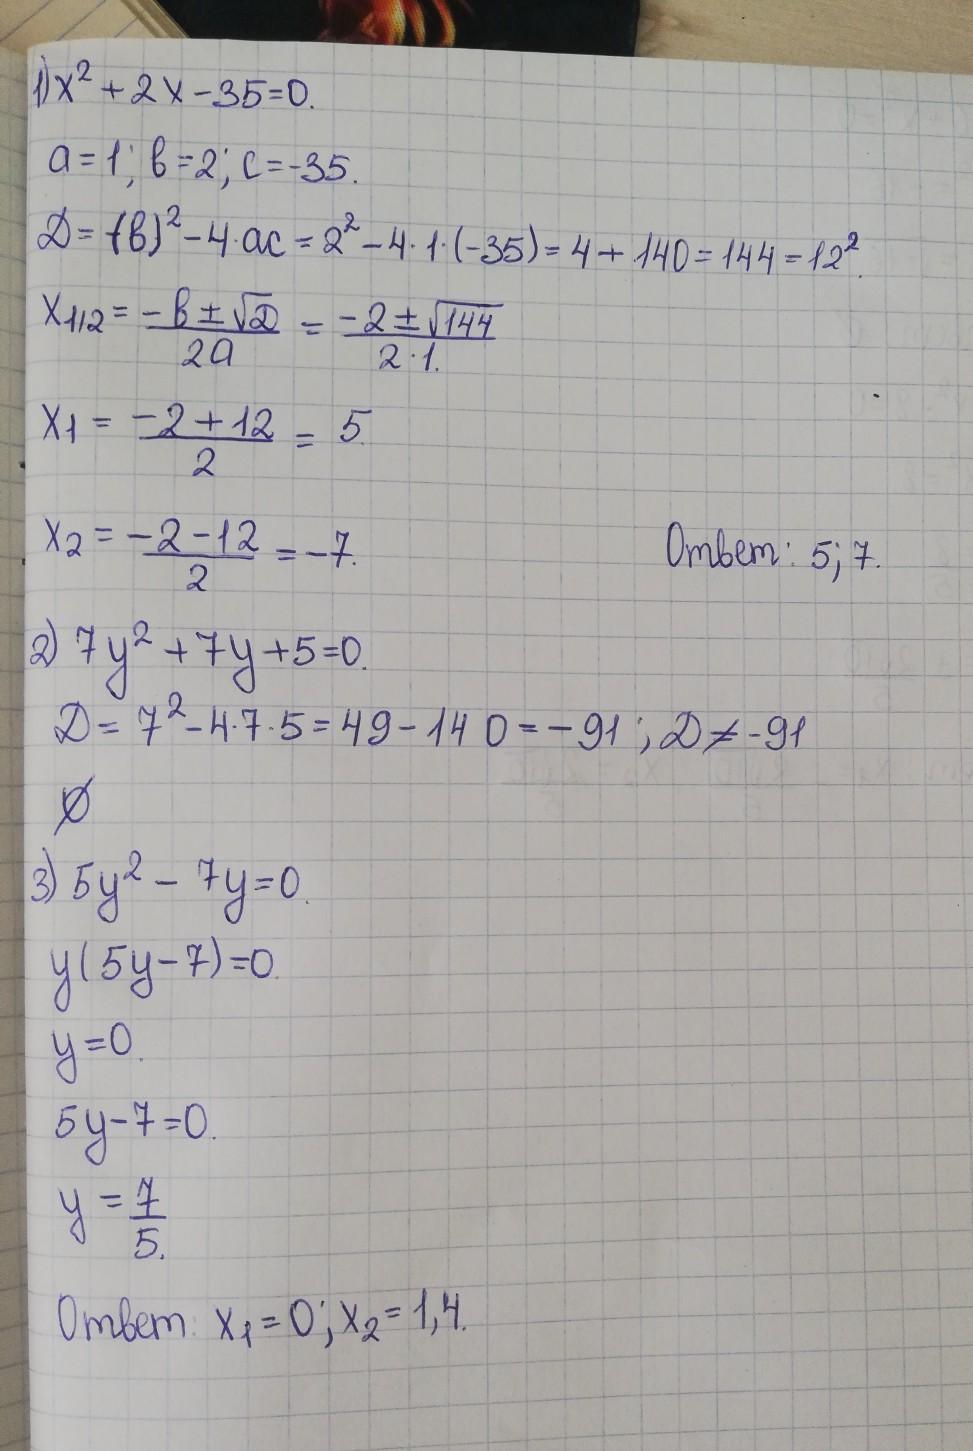 1) x² + 2x - 35 = 0.
a = 1; b = 2; c = -35.
D = (b)² - 4·ac = 2² - 4·1·(-35) = 4 + 140 = 144 = 12².
x1,2 = (-b ± √D)/(2a) = (-2 ± √144)/(2·1.)
x1 = (-2 + 12)/2 = 5.
x2 = (-2 - 12)/2 = -7.
Ответ: 5; 7.
2) 7y² + 7y + 5 = 0.
D = 7² - 4·7·5 = 49 - 140 = -91; D ≠ -91
∅
3) 5y² - 7y = 0.
y(5y - 7) = 0.
y = 0.
5y - 7 = 0.
y = 7/5.
Ответ: x1 = 0; x2 = 1,4.